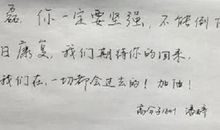 磊，你一定要坚强，不能倒下
日康复，我们期待你的回来，
我们在，一切都会过去的！加油！
高分子 潘婷